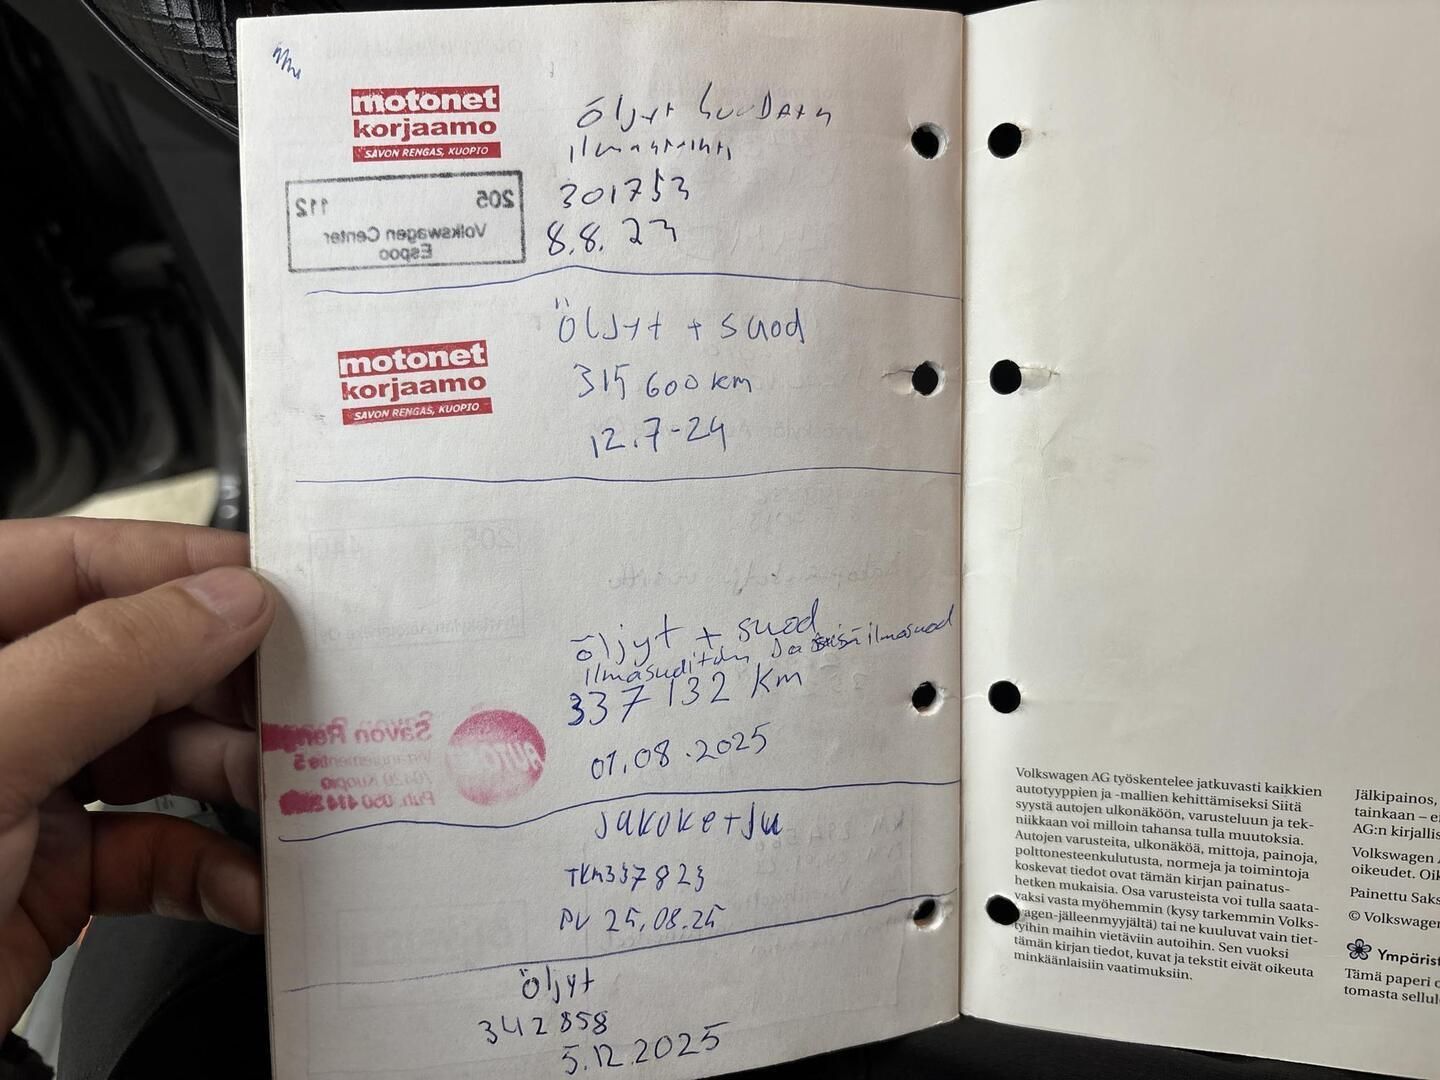 motonet
korjaamo
SAVON RENGAS, KUOPIO
205 112
Volkswagen Center
Espoo
Öljyt suodatin
301753
8.8.23
motonet
korjaamo
SAVON RENGAS, KUOPIO
Öljyt + suod
315 600 km
12.7-24
öljyt + suod
ilmasuodatin ja sisäilmasuod
337 132 km
01.08.2025
Savon
5
70420 Kuopio
Puh. 050 414
AUTO
Jakoketju
TKM 337823
PV 25.08.25
Öljyt
342 858
5.12.2025
Volkswagen AG työskentelee jatkuvasti kaikkien
autotyyppien ja -mallien kehittämiseksi Siitä
syystä autojen ulkonäköön, varusteluun ja tek-
niikkaan voi milloin tahansa tulla muutoksia.
Autojen varusteita, ulkonäköä, mittoja, painoja,
polttonesteenkulutusta, normeja ja toimintoja
koskevat tiedot ovat tämän kirjan painatus-
hetken mukaisia. Osa varusteista voi tulla saata-
vaksi vasta myöhemmin (kysy tarkemmin Volks-
wagen-jälleenmyyjältä) tai ne kuuluvat vain tiet-
tyihin maihin vietäviin autoihin. Sen vuoksi
tämän kirjan tiedot, kuvat ja tekstit eivät oikeuta
minkäänlaisiin vaatimuksiin.
Jälkipainos,
tainkaan – e
AG:n kirjallis
Volkswagen A
oikeudet. Oik
Painettu Saks
© Volkswagen
Ympärist
Tämä paperi o
tomasta sellul